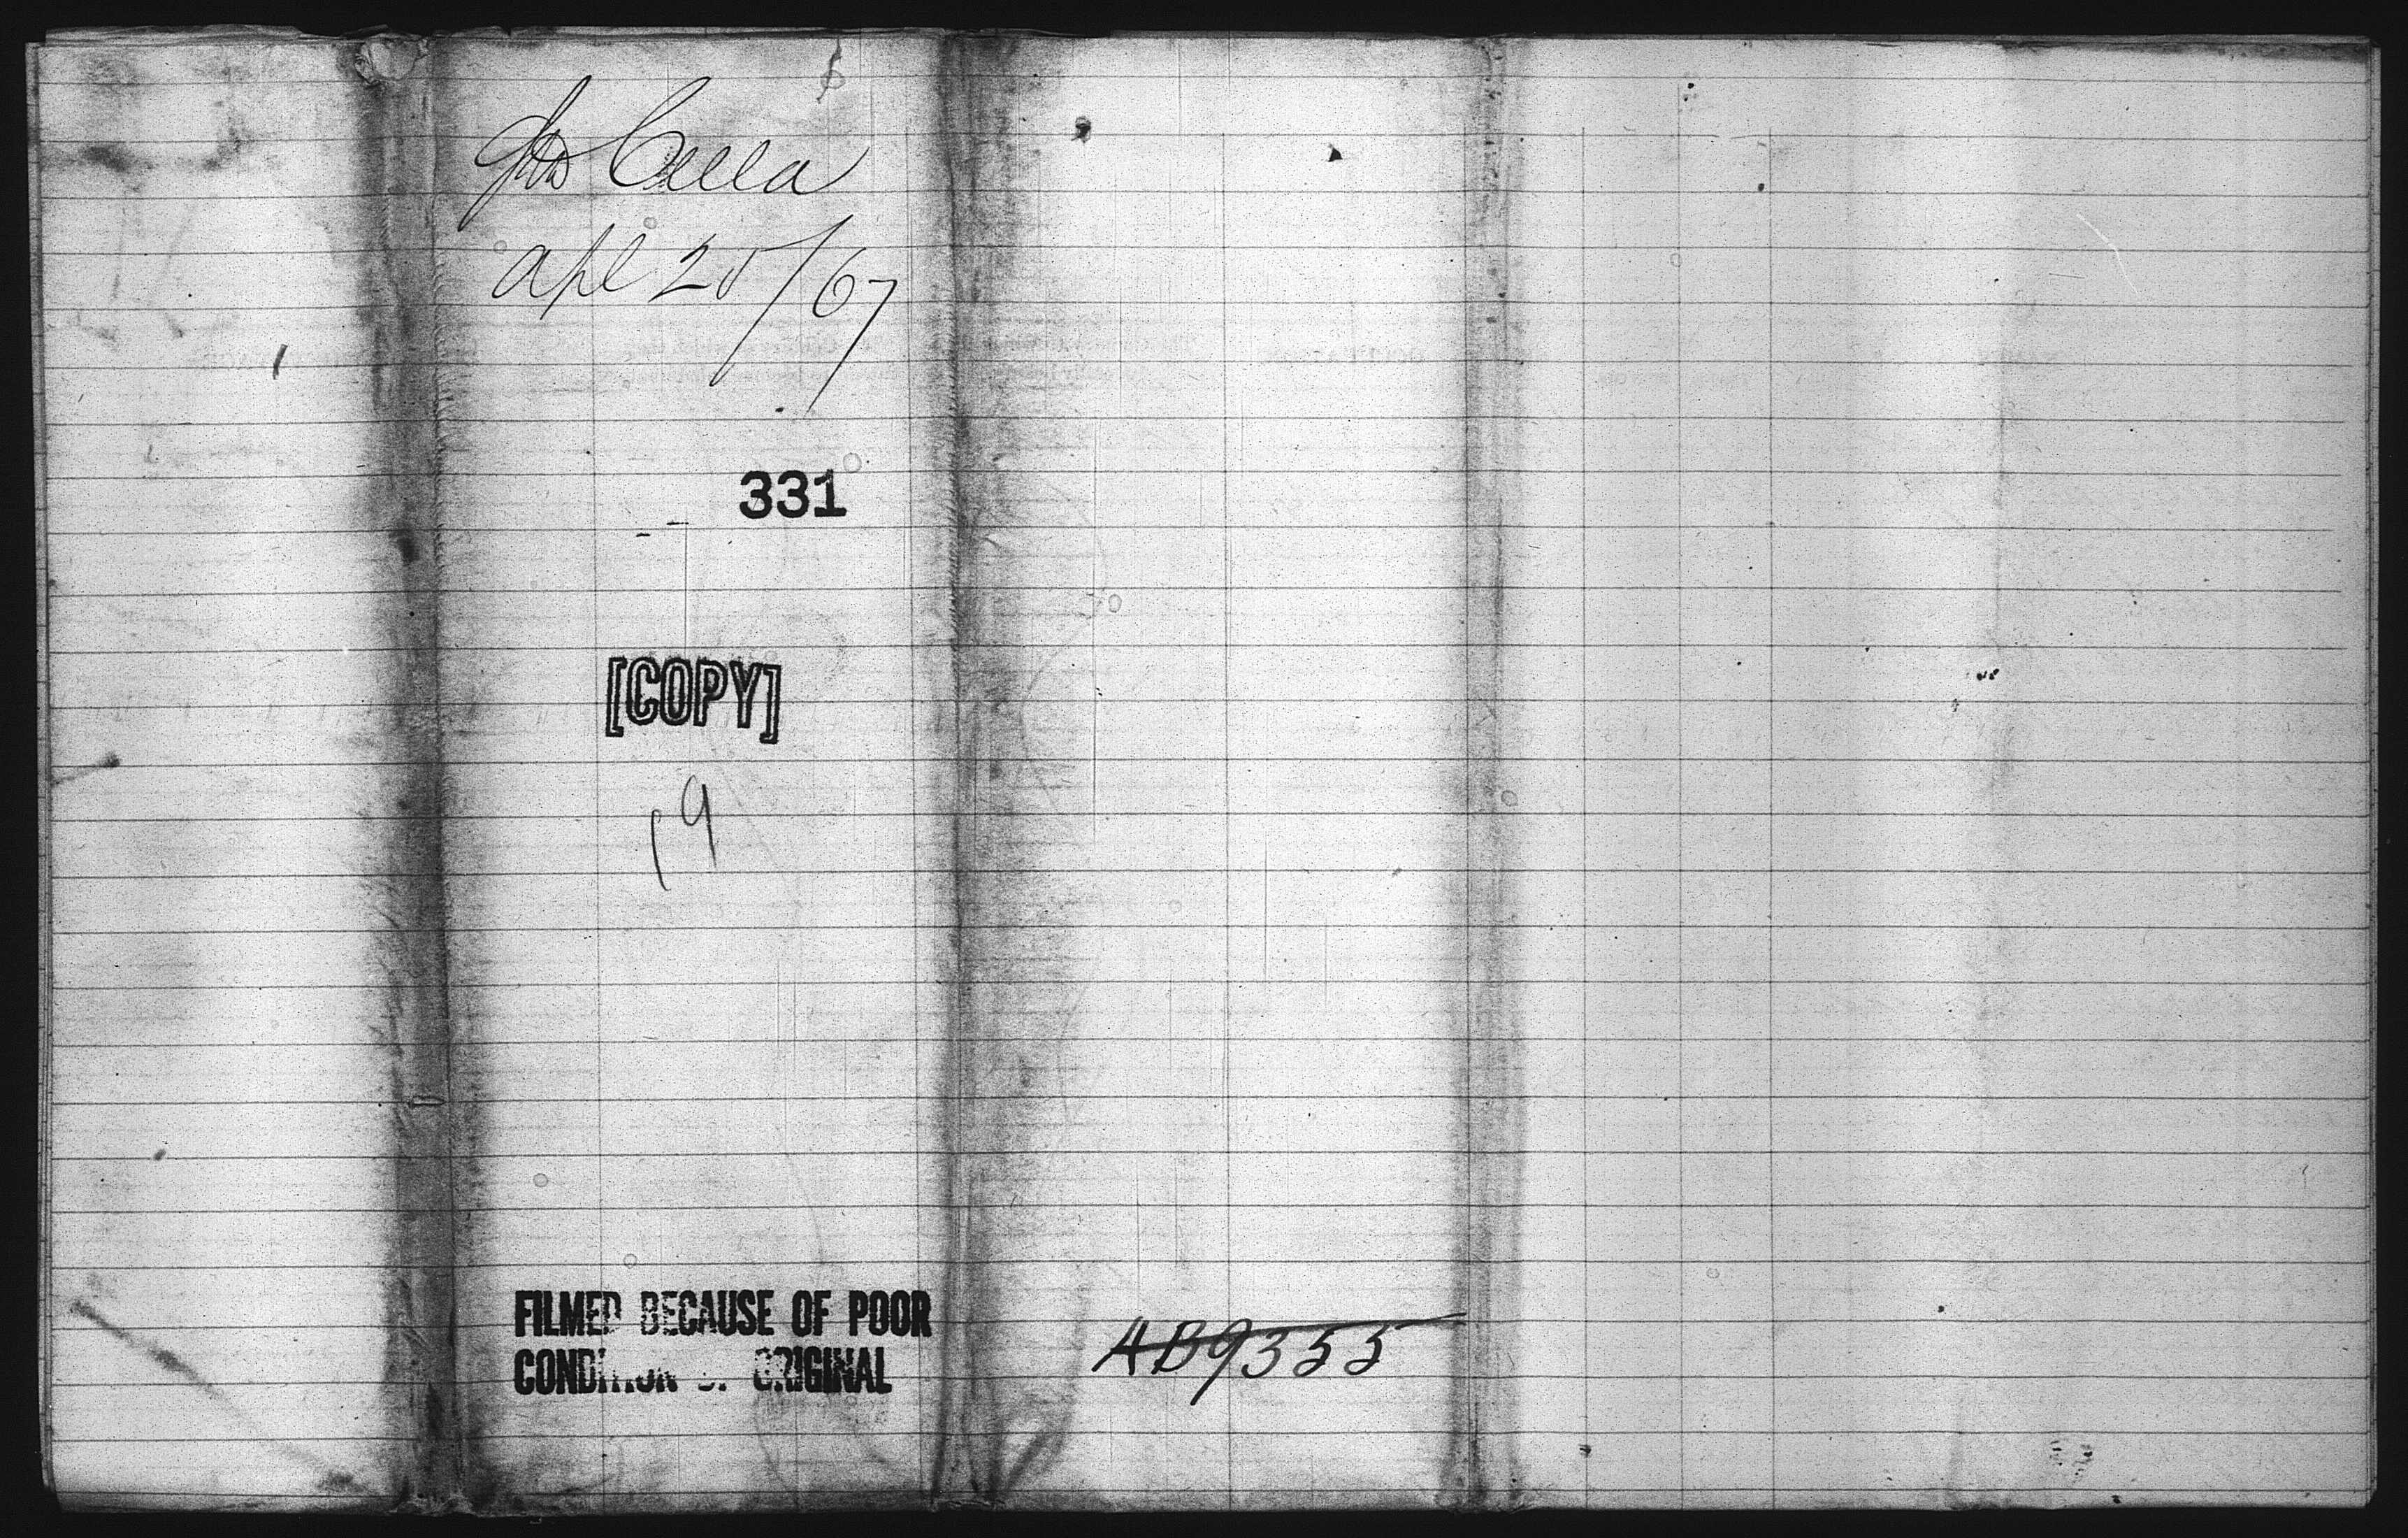 Str Cella
apl 25/67
331
[COPY]
19
FILMED BECAUSE OF POOR
CONDITION OF ORIGINAL
AB9355